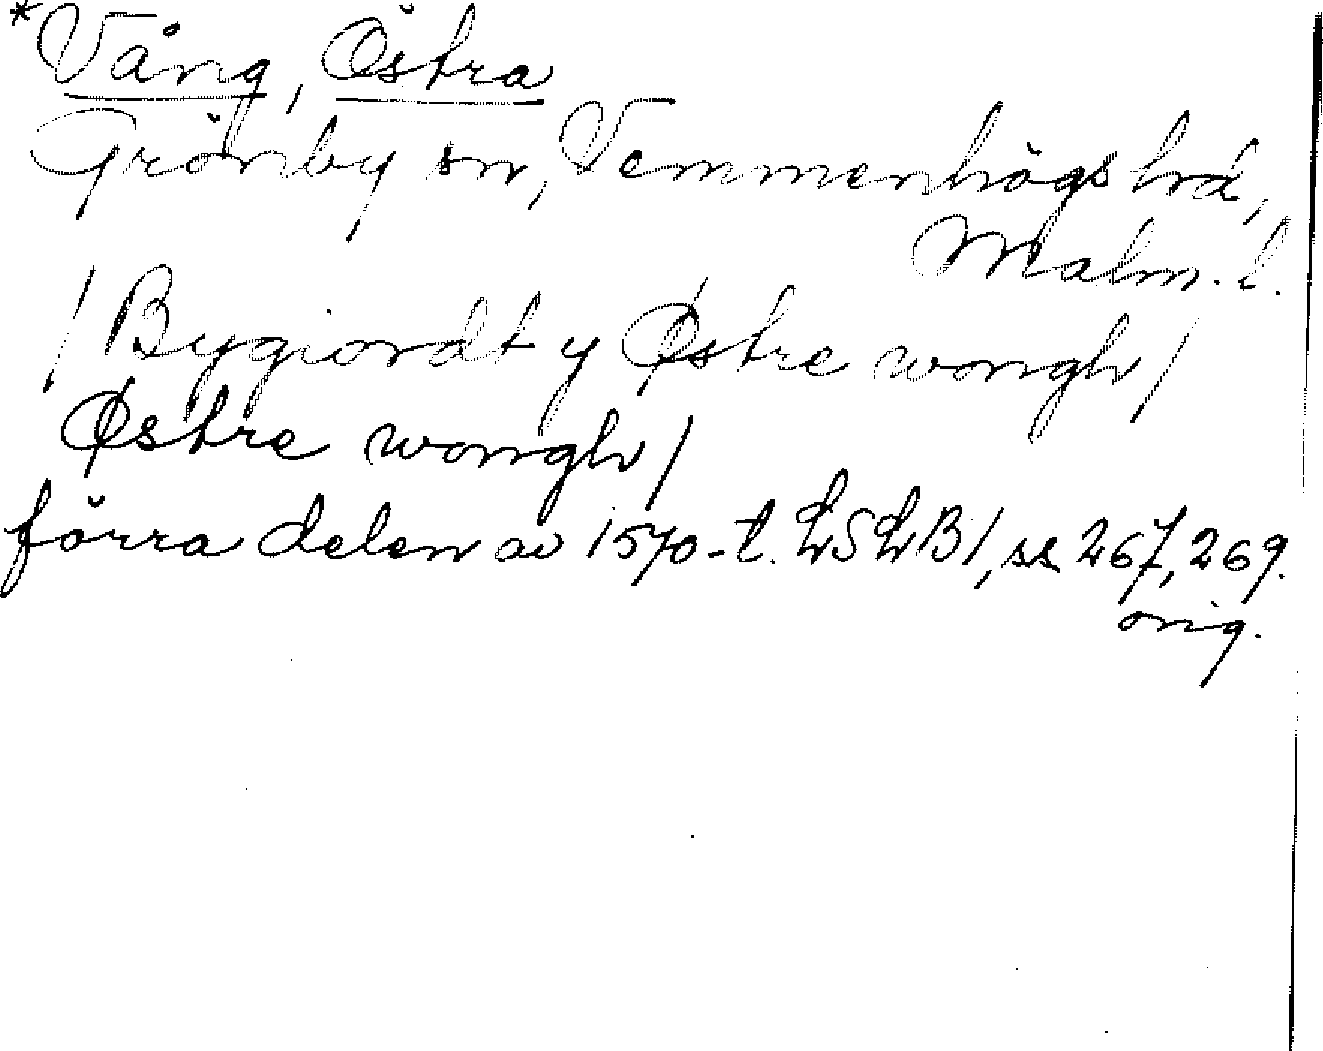 *Vång, Östra
Grönby sn, Vemmenhögs hd,
Malm. l.
/ Bygiordt y Østre wongh /
Østre wongh /
förra delen av 1570-t. LSLB 1, ss 267, 269.
orig.